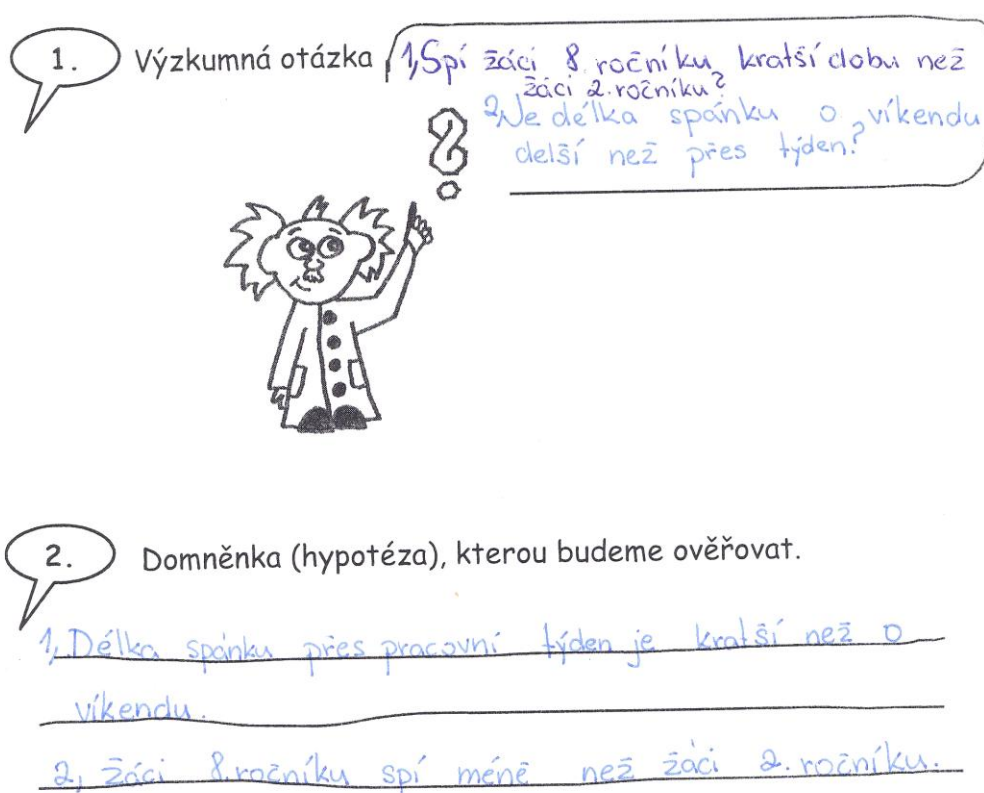 1. Výzkumná otázka
1, Spí žáci 8. ročníku kratší dobu než
žáci 2. ročníku?
2, Je délka spánku o víkendu
delší než přes týden?
2. Domněnka (hypotéza), kterou budeme ověřovat.
1, Délka spánku přes pracovní týden je kratší než o
víkendu.
2, žáci 8. ročníku spí méně než žáci 2. ročníku.